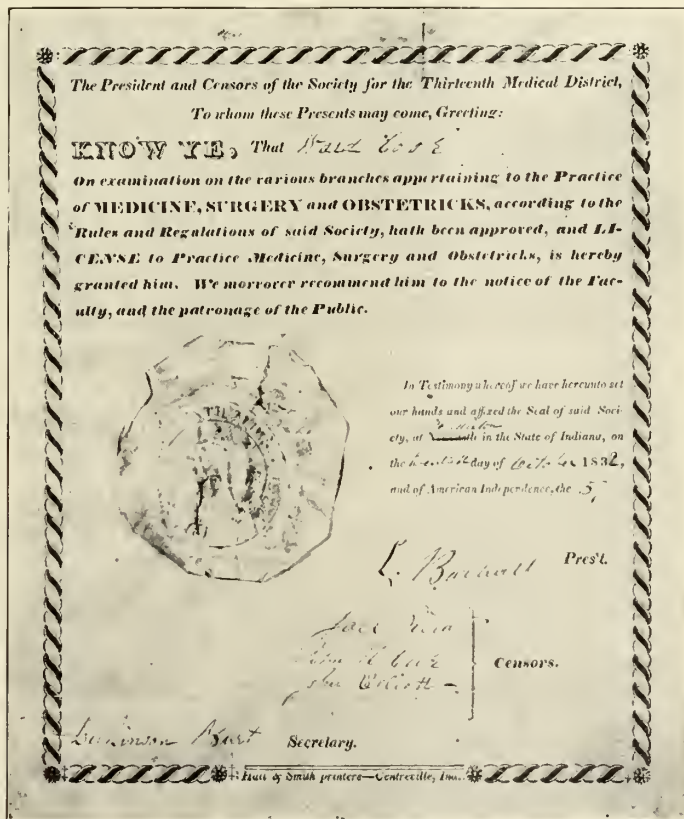 The President and Censors of the Society for the Thirteenth Medical District,
To whom these Presents may come, Greeting:
KNOW YE, That
On examination on the various branches appertaining to the Practice
of MEDICINE, SURGERY and OBSTETRICKS, according to the
Rules and Regulations of said Society, hath been approved, and LI-
CENSE to Practice Medicine, Surgery and Obstetricks, is hereby
granted him. We moreover recommend him to the notice of the Fac-
ulty, and the patronage of the Public.
In Testimony whereof we have hereunto set
our hands and affixed the Seal of said Soci-
ety, at in the State of Indiana, on
the day of October 1832,
and of American Independence, the 5
Pres't.
Censors.
Secretary.
Hall & Smith printers—Centreville, Ind.